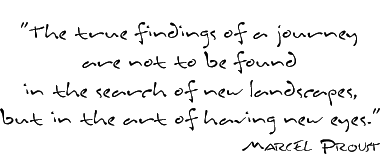 "The true findings of a journey
are not to be found
in the search of new landscapes,
but in the art of having new eyes."
Marcel Proust